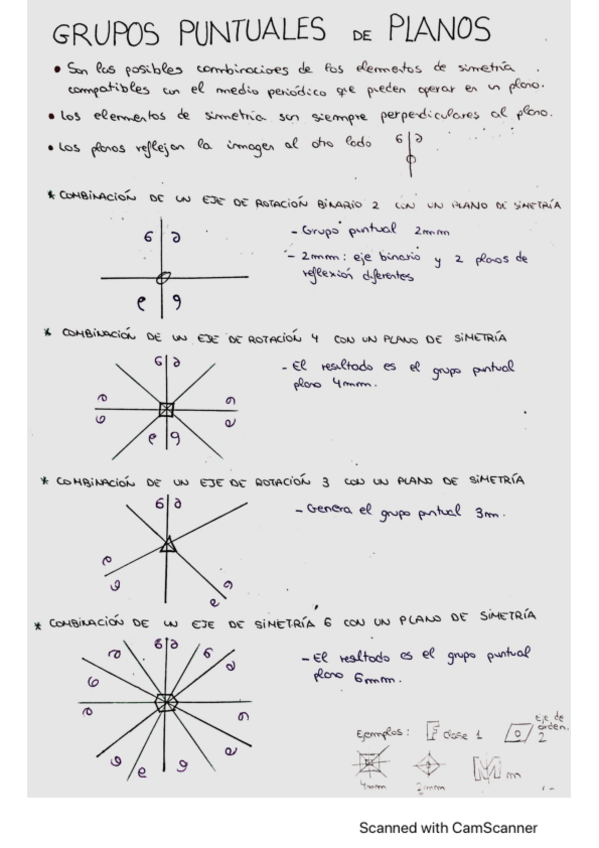 GRUPOS PUNTUALES DE PLANOS
• Son las posibles combinaciones de los elementos de simetría
compatibles con el medio periódico que pueden operar en un plano.
• Los elementos de simetría son siempre perpendiculares al plano.
• Los planos reflejan la imagen al otro lado
* COMBINACIÓN DE UN EJE DE ROTACIÓN BINARIO 2 CON UN PLANO DE SIMETRÍA
- Grupo puntual 2mm
- 2mm: eje binario y 2 planos de
reflexión diferentes
* COMBINACIÓN DE UN EJE DE ROTACIÓN 4 CON UN PLANO DE SIMETRÍA
- El resultado es el grupo puntual
plano 4mm.
* COMBINACIÓN DE UN EJE DE ROTACIÓN 3 CON UN PLANO DE SIMETRÍA
- Genera el grupo puntual 3m.
* COMBINACIÓN DE UN EJE DE SIMETRÍA 6 CON UN PLANO DE SIMETRÍA
- El resultado es el grupo puntual
plano 6mm.
Ejemplos: F clase 1
Eje de
orden
2
4mm 2mm M m
Scanned with CamScanner